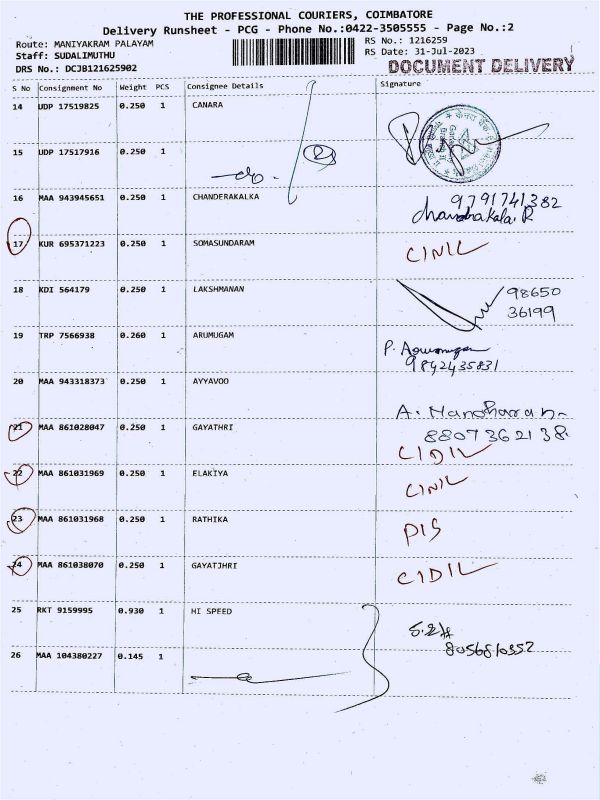 THE PROFESSIONAL COURIERS, COIMBATORE
Delivery Runsheet - PCG - Phone No.:0422-3505555 - Page No.:2
Route: MANIYAKRAM PALAYAM RS No.: 1216259
Staff: SUDALIMUTHU RS Date: 31-Jul-2023
DRS No.: DCJB121625902 DOCUMENT DELIVERY
S No Consignment No Weight PCS Consignee Details Signature
14 UDP 17519825 0.250 1 CANARA
15 UDP 17517916 0.250 1
-do.
16 MAA 943945651 0.250 1 CHANDERAKALKA 9791741382
chandrakala.R
17 KUR 695371223 0.250 1 SOMASUNDARAM CINIL
18 KDI 564179 0.250 1 LAKSHMANAN 98650
36199
19 TRP 7566938 0.260 1 ARUMUGAM P. Arumugam
9842435831
20 MAA 943318373 0.250 1 AYYAVOO A. Manoharan
8807362138.
21 MAA 861028047 0.250 1 GAYATHRI CIDIL
22 MAA 861031969 0.250 1 ELAKIYA CINIL
23 MAA 861031968 0.250 1 RATHIKA PIS
24 MAA 861038070 0.250 1 GAYATJHRI CIDIL
25 RKT 9159995 0.930 1 HI SPEED
8056810352
26 MAA 104380227 0.145 1